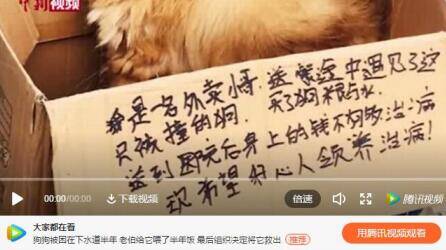 中新视频
我是一名外卖小哥,送餐途中遇见了这
只被撞的狗,买了狗粮与水
送到医院后身上的钱不够够治病
现希望好心人领养治病!
00:00/00:00
下载视频
倍速
腾讯视频
大家都在看
狗狗被困在下水道半年 老伯给它喂了半年饭 最后组织决定将它救出
推荐
用腾讯视频观看